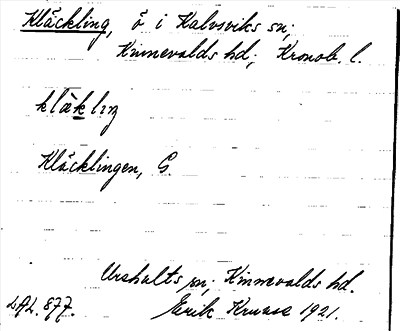 Kläckling, ö i Kalvsviks sn;
Kinnevalds hd; Kronob. l.
klä̀kliŋ
Kläcklingen, G.
Urshults sn; Kinnevalds hd.
LAL. 877. Erik Kruse 1921.